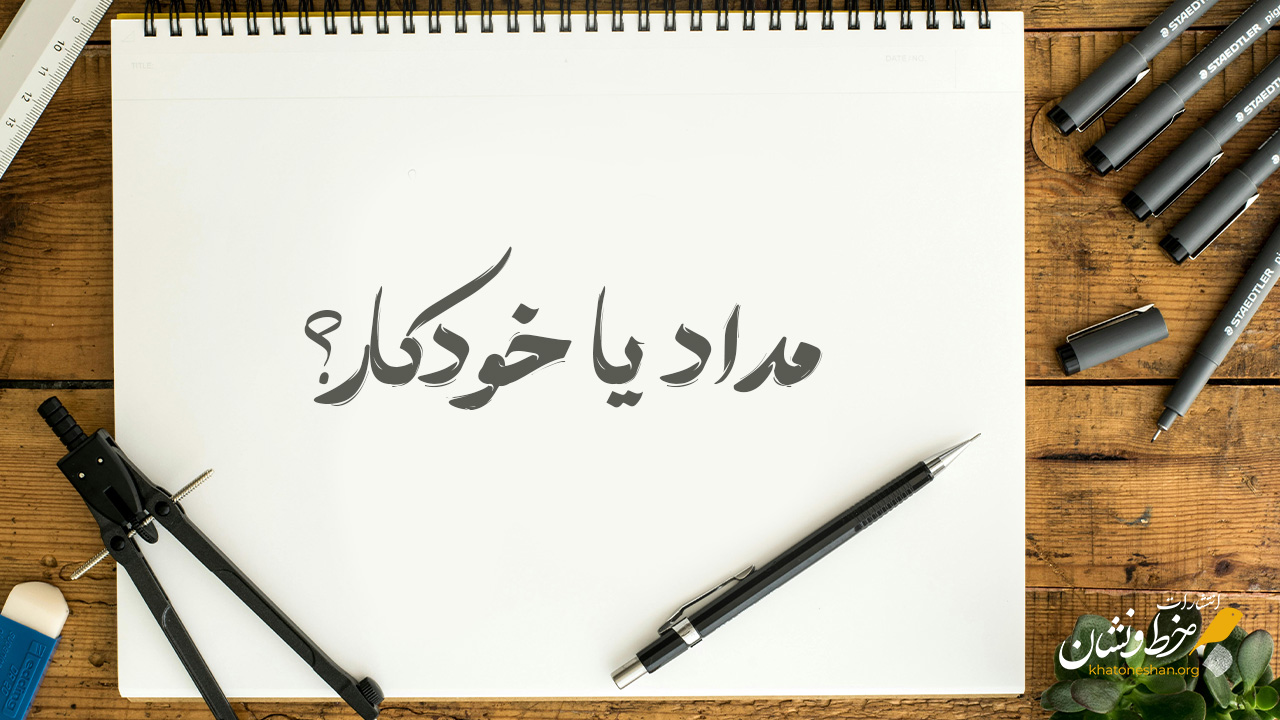 مداد یا خودکار؟
TITLE:
DATE/NO.
9
10
11
12
13
STAEDTLER
STAEDTLER
STAEDTLER
STAEDTLER
انتشارات
خط و نشان
khatoneshan.org